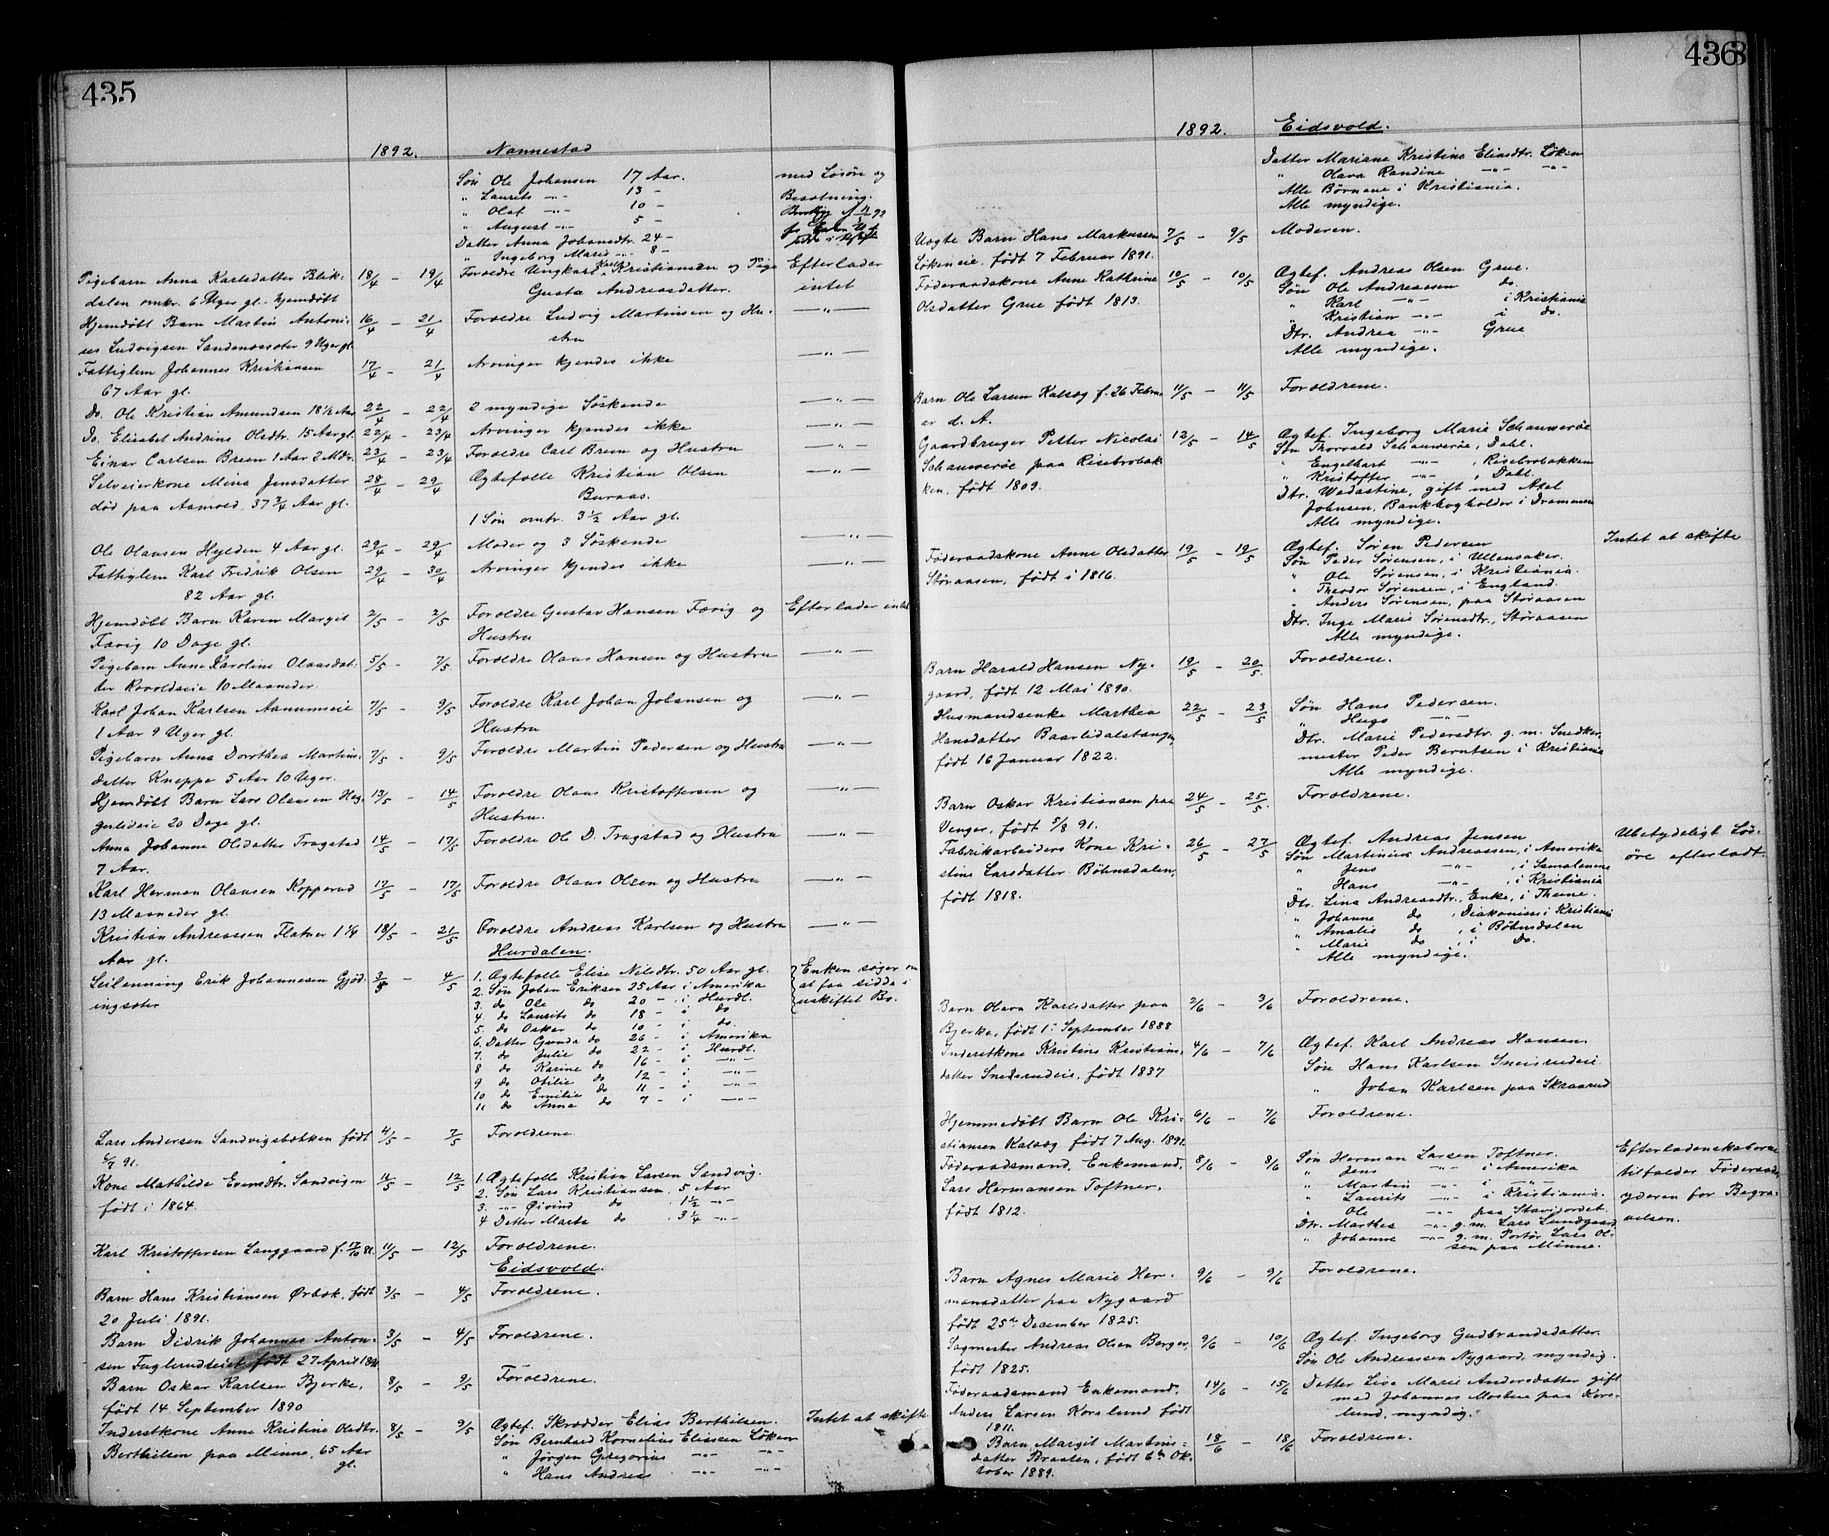 435
1892. Nannestad
Søn Ole Johansen 17 Aar. med Løsøre og
" Laurits -"- 13 - Besætning.
" Olaf -"- 10 -
" August -"- 5 -
Datter Anna Johansdtr. 24 -
" Ingeborg Marie -"- 8 -
Pigebarn Anna Karlsdatter Blik- 18/4 - 19/4 Forældre Ungkarl Karl Kristiansen og Pige Efterlader
dalen omkr. 6 Uger gl. hjemdøbt Gusta Andreasdatter. intet
Hjemdøbt Barn Martin Antoni- 16/4 - 21/4 Forældre Ludvig Martinsen og Hu- -"-
us Ludvigsen Sandenessæter 9 Uger gl. stru
Fattiglem Johannes Kristiansen 17/4 - 21/4 Arvinger kjendes ikke -"-
67 Aar gl.
Do. Ole Kristian Amundsen 18 1/2 Aar 22/4 - 22/4 2 myndige Søskende -"-
Do. Elisabet Andrine Olsdtr. 15 Aar gl. 22/4 - 23/4 Arvinger kjendes ikke -"-
Einar Carlsen Breen 1 Aar 2 Mdr. 23/4 - 23/4 Forældre Carl Breen og Hustru -"-
Selveierkone Mina Jensdatter 28/4 - 29/4 Ægtefælle Kristian Olsen -"-
død paa Aamoed, 37 3/4 Aar gl. Buraas.
1 Søn omtr. 3 1/2 Aar gl.
Ole Olausen Hylden 4 Aar gl. 29/4 - 29/4 Moder og 3 Søskende -"-
Fattiglem Karl Fredrik Olsen 29/4 - 30/4 Arvinger kjendes ikke -"-
82 Aar gl.
Hjemdøbt Barn Karen Margit 2/5 - 2/5 Forældre Gustav Hansen Færig og Efterlader intet
Færig 10 Dage gl. Hustru
Pigebarn Anne Karoline Olausdat- 5/5 - 7/5 Forældre Olaus Hansen og Hustru -"-
ter Rovoldseie 10 Maaneder
Karl Johan Karlsen Aanumseie 7/5 - 9/5 Forældre Karl Johan Johansen og -"-
1 Aar 9 Uger gl. Hustru
Pigebarn Anna Dorthea Martins- 7/5 - 9/5 Forældre Martin Pedersen og Hustru -"-
datter Kneppe 5 Aar 10 Uger.
Hjemdøbt Barn Lars Olausen Hag- 13/5 - 14/5 Forældre Olaus Kristoffersen og -"-
gulieie 20 Dage gl. Hustru.
Anna Johanne Olsdatter Trugstad 14/5 - 17/5 Forældre Ole D. Trugstad og Hustru -"-
7 Aar.
Karl Herman Olausen Kopperud 17/5 - 17/5 Forældre Olaus Olsen og Hustru -"-
13 Maaneder gl.
Kristian Andreassen Flatner 1 1/4 18/5 - 21/5 Forældre Andreas Karlsen og Hustru -"-
Aar gl. Hurdalen.
Leilænning Erik Johannesen Gjød- 3/5 - 4/5 1. Ægtefælle Elise Nilsdtr. 50 Aar gl. Enken søger om
ingsæter 2. Søn Johan Eriksen 25 Aar i Amerika at faa sidde i
3. do Ole do 20 - i Hurdl. uskiftet Bo.
4. do Laurits do 18 - i do
5. do Oskar do 10 - i do.
6. Datter Gunda do 26 - i Amerika
7. do Julie do 22 - i Hurdl.
8 do Karine do 16 - i -"-
9 do Otilie do 12 - i -"-
10 do Emilie do 11 - i -"-
11 do Anna do 7 - i -"-
Lars Andersen Sandvigsbækken født 4/5 - 7/5 Forældrene.
91.
Kone Mathilde Evensdtr. Sandvigen 11/5 - 12/5 1. Ægtefælle Kristian Larsen Sandvig.
født i 1864. 2. Søn Lars Kristiansen, 5 Aar
3. -"- Øivind do 1 1/2 -"-
4 Datter Marta do 3 1/4 -"-
Karl Kristoffersen Langgaard f. 17/10 81. 11/5 - 12/5 Forældrene.
Eidsvold.
Barn Hans Kristiansen Ørbæk, født 3/5 - 4/5 Forældrene.
20 Juli 1891.
Barn Didrik Johannes Anton- 3/5 - 4/5 Forældrene.
sen Fuglerudseiet født 27 April
Barn Oskar Karlsen Bjerke, 8/5 - 9/5 Forældrene.
født 14 September 1890
Inderstkone Anne Kristine Olsdtr. 8/5 - 9/5 Ægtef. Skrædder Elias Berthilsen. Intet at skifte
Berthilsen paa Minne, 65 Aar Søn Bernhard Kornelius Eliassen Løken
gl. " Jørgen Gregorius -"- -"-
" Hans Andreas -"- -"-
436
1892. Eidsvold.
Datter Mariane Kristine Eliasdtr. Løken
" Olava Randine -"- -"-
Alle Børnene i Kristiania.
Alle myndige.
Uægte Barn Hans Markussen 7/5 - 9/5 Moderen.
Løkeneie, født 7 Februar 1891.
Føderaadskone Anne Kathrine 10/5 - 10/5 Ægtef. Andreas Olsen Grue.
Olsdatter Grue født 1813. Søn Ole Andreassen do.
" Karl -"- i Kristiania
" Kristian -"- i do.
Dtr. Andrea -"- Grue
Alle myndige.
Barn Ole Larsen Kalsæg f. 26 Febru- 11/5 - 11/5 Forældrene.
ar d. A.
Gaardbruger Petter Nicolai 12/5 - 14/5 Ægtef. Ingeborg Marie Schauwerøe
Schauwerøe paa Risebrobak- Søn Thorvald Schauwerøe, Dahl.
ken, født 1809. " Engelhart -"-, Risebrobakken
" Kristoffer -"-, Dahl.
Dtr. Wedastine, gift med Axel
Johnsen, Bankbogholder i Drammen
Alle myndige.
Føderaadskone Anne Olsdatter 19/5 - 19/5 Ægtef. Søren Pedersen Intet at skifte
Støraasen, født i 1816. Søn Peder Sørensen, i Ullensaker.
" Ole Sørensen, i Kristiania.
" Theodor Sørensen, i England.
" Anders Sørensen, paa Støraasen
Dtr. Inge Marie Sørensdtr., Støraasen
Alle myndige.
Barn Harald Hansen Ny- 19/5 - 20/5 Forældrene.
gaard, født 12 Mai 1890.
Husmandsenke Marthea 22/5 - 23/5 Søn Hans Pedersen.
Hansdatter Baarlidalstangen, " Hugo -"-
født 16 Januar 1822. Dtr. Marie Pedersdtr. g. m. Snedker-
mester Peder Berntsen i Kristiania
Alle myndige.
Barn Oskar Kristiansen paa 24/5 - 25/5 Forældrene.
Venger, født 5/8 91.
Fabrikarbeiders Kone Kri- 26/5 - 27/5 Ægtef. Andreas Jensen Ubetydeligt Løs-
stine Larsdatter Bøhnsdalen, Søn Martinius Andreassen, i Amerika øre efterladt.
født 1818. " Jens -"-, i Smaalenene
" Hans -"-, i Kristiania
Dtr. Lina Andreasdtr., Enke, i Thune.
" Johanne do, Diakonisse i Kristiania
" Amalie do, i Bøhnsdalen
" Marie do, i Do.
Alle myndige.
Barn Olava Karlsdatter paa 2/6 - 3/6 Forældrene.
Bjerke, født 1: September 1888
Inderstkone Kristine Kristians- 4/6 - 7/6 Ægtef. Karl Andreas Hansen.
datter Snedsrudeie, født 1837 Søn Hans Karlsen Sneisrudeie
" Johan Karlsen paa Skraarud
Hjemmedøbt Barn Ole Kri- 6/6 - 7/6 Forældrene.
stiansen Kalsæg født 7 Aug. 1891.
Føderaadsmand, Enkemand, 8/6 - 8/6 Søn Herman Larsen Toftner. Efterladenskaberne
Lars Hermansen Toftner, " Jens -"- i Amerika tilfalder Føderaads-
født 1812. " Martin -"- i -"- yderen for Begra-
" Laurits -"- i Kristiania. velsen.
" Ole -"- paa Stavfjordet.
Dtr. Marthea -"- g. m. Lars Lundgaard
" Johanne -"- g. m. Portør Lars Ol-
sen paa Minne.
Barn Agnes Marie Her- 9/6 - 9/6 Forældrene.
mansdatter paa Nygaard
født 25de December 1825.
Sagmester Andreas Olsen Berger, 9/6 - 10/6 Ægtef. Ingeborg Gudbrandsdatter.
født 1825. Søn Ole Andreassen Nygaard, myndig.
Føderaadsmand Enkemand, 14/6 - 15/6 Datter Lisa Marie Andersdatter gift
Anders Larsen Korslund født med Johannes Mostue paa Kors-
1811. lund, myndig.
Barn Margit Martins- 18/6 - 18/6 Forældrene.
datter Braaten, født 6te Ok-
tober 1889.